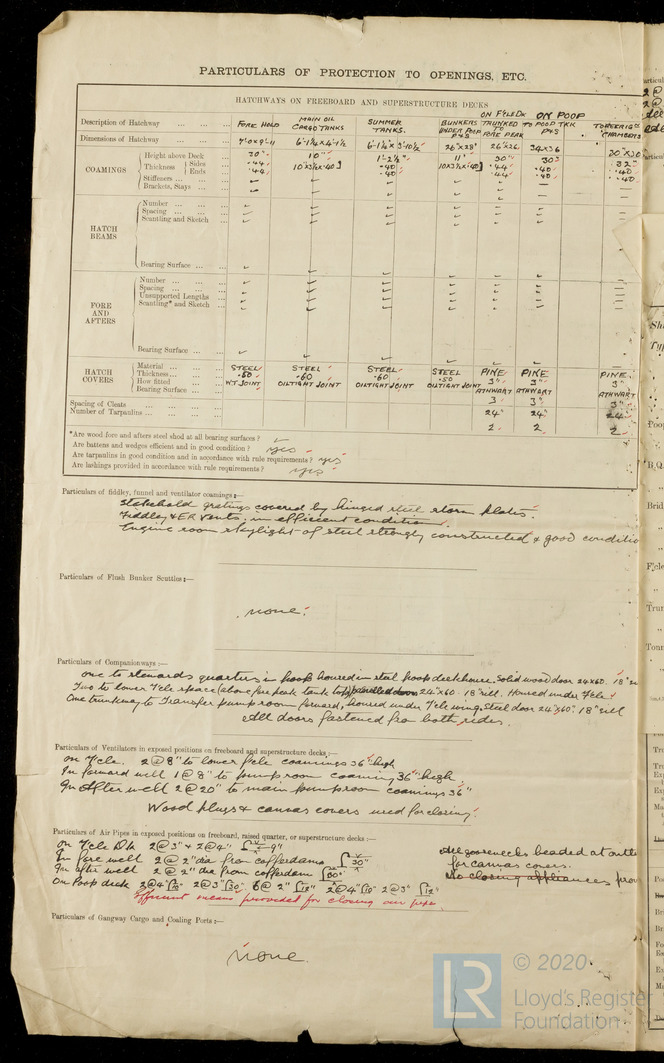 PARTICULARS OF PROTECTION TO OPENINGS, ETC.
HATCHWAYS ON FREEBOARD AND SUPERSTRUCTURE DECKS
Description of Hatchway FORE HOLD MAIN OIL CARGO TANKS SUMMER TANKS. BUNKERS UNDER POOP P&S ON F'CLE DK TRUNKED TO FORE PEAK ON POOP TO POOP TKK P&S CHAMBERS
Dimensions of Hatchway 26"x28" 26"x26 24x36 30"x30"
COAMINGS
Height above Deck 30" 10" 1'-2½" 11" 30" 30" 32"
Thickness Sides .44 10"x3½x.40] .40 10x3½x.40] .44 .40 .40
Ends .44 .40 .44 .40 .40
Stiffeners
Brackets, Stays
HATCH BEAMS
Number
Spacing
Scantling and Sketch
Bearing Surface
FORE AND AFTERS
Number
Spacing
Unsupported Lengths
Scantling* and Sketch
Bearing Surface
HATCH COVERS
Material STEEL STEEL STEEL STEEL PINE PINE PINE
Thickness .50 .60 .60 .50 3" 3" 3"
How fitted WT JOINT OILTIGHT JOINT OILTIGHT JOINT OILTIGHT JOINT ATHWART ATHWART ATHWART
Bearing Surface 3" 3" 3"
Spacing of Cleats 24" 24" 24"
Number of Tarpaulins 2 2 2
*Are wood fore and afters steel shod at all bearing surfaces?
Are battens and wedges efficient and in good condition? yes
Are tarpaulins in good condition and in accordance with rule requirements? yes
Are lashings provided in accordance with rule requirements? yes
Particulars of fiddley, funnel and ventilator coamings:—
Stokehold gratings covered by hinged steel storm plates.
Fiddley & ER vents; in efficient condition.
Engine room skylight of steel strongly constructed & good conditio
Particulars of Flush Bunker Scuttles:—
none.
Particulars of Companionways:—
One to stewards quarters in poop housed in steel poop deckhouse. Solid wood door 24x60. 18"
Two to lower F'cle space (above fore peak tank top) panelled doors 24"x60. 18" sill. Housed under F'cle
One trunkway to Transfer pump room forward, housed under F'cle wing, steel door 24"x60" 18" sill
All doors fastened from both sides.
Particulars of Ventilators in exposed positions on freeboard and superstructure decks:—
On F'cle. 2 @ 8" to lower F'cle coamings 36" high
In forward well 1 @ 8" to pump room coaming 36" high
In After well 2 @ 20" to main pump room coamings 36"
Wood plugs & canvas covers used for closing.
Particulars of Air Pipes in exposed positions on freeboard, raised quarter, or superstructure decks:—
On F'cle Dk 2 @ 3" & 2 @ 4" 9"
In fore well 2 @ 2" dia from cofferdams 30"
In after well 2 @ 2" dia from cofferdam 30"
On Poop deck 2@4" 2@3" 6@2" 18" 2@4" 2@3" 12"
Efficient means provided for closing air pipes.
All goosenecks beaded at outle
for canvas covers.
No closing appliances prov
Particulars of Gangway Cargo and Coaling Ports:—
none.
LR © 2020
Lloyd's Register
Foundation